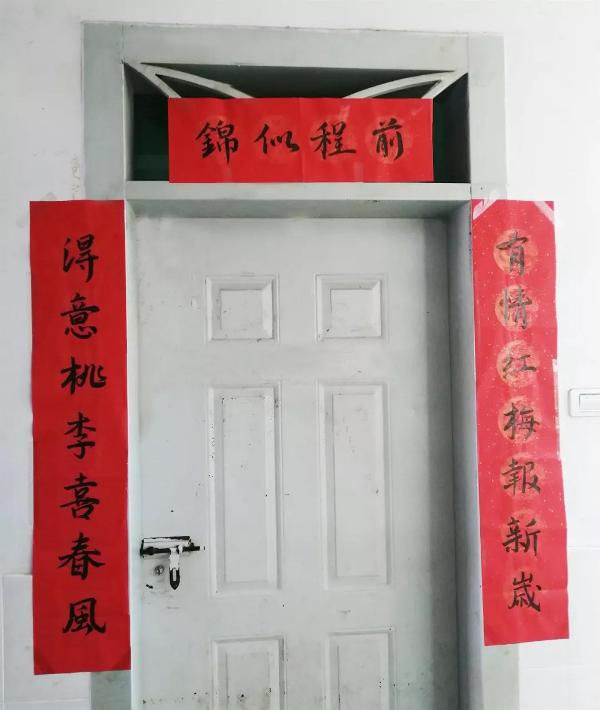 前程似錦
有情红梅報新歲
得意桃李喜春風